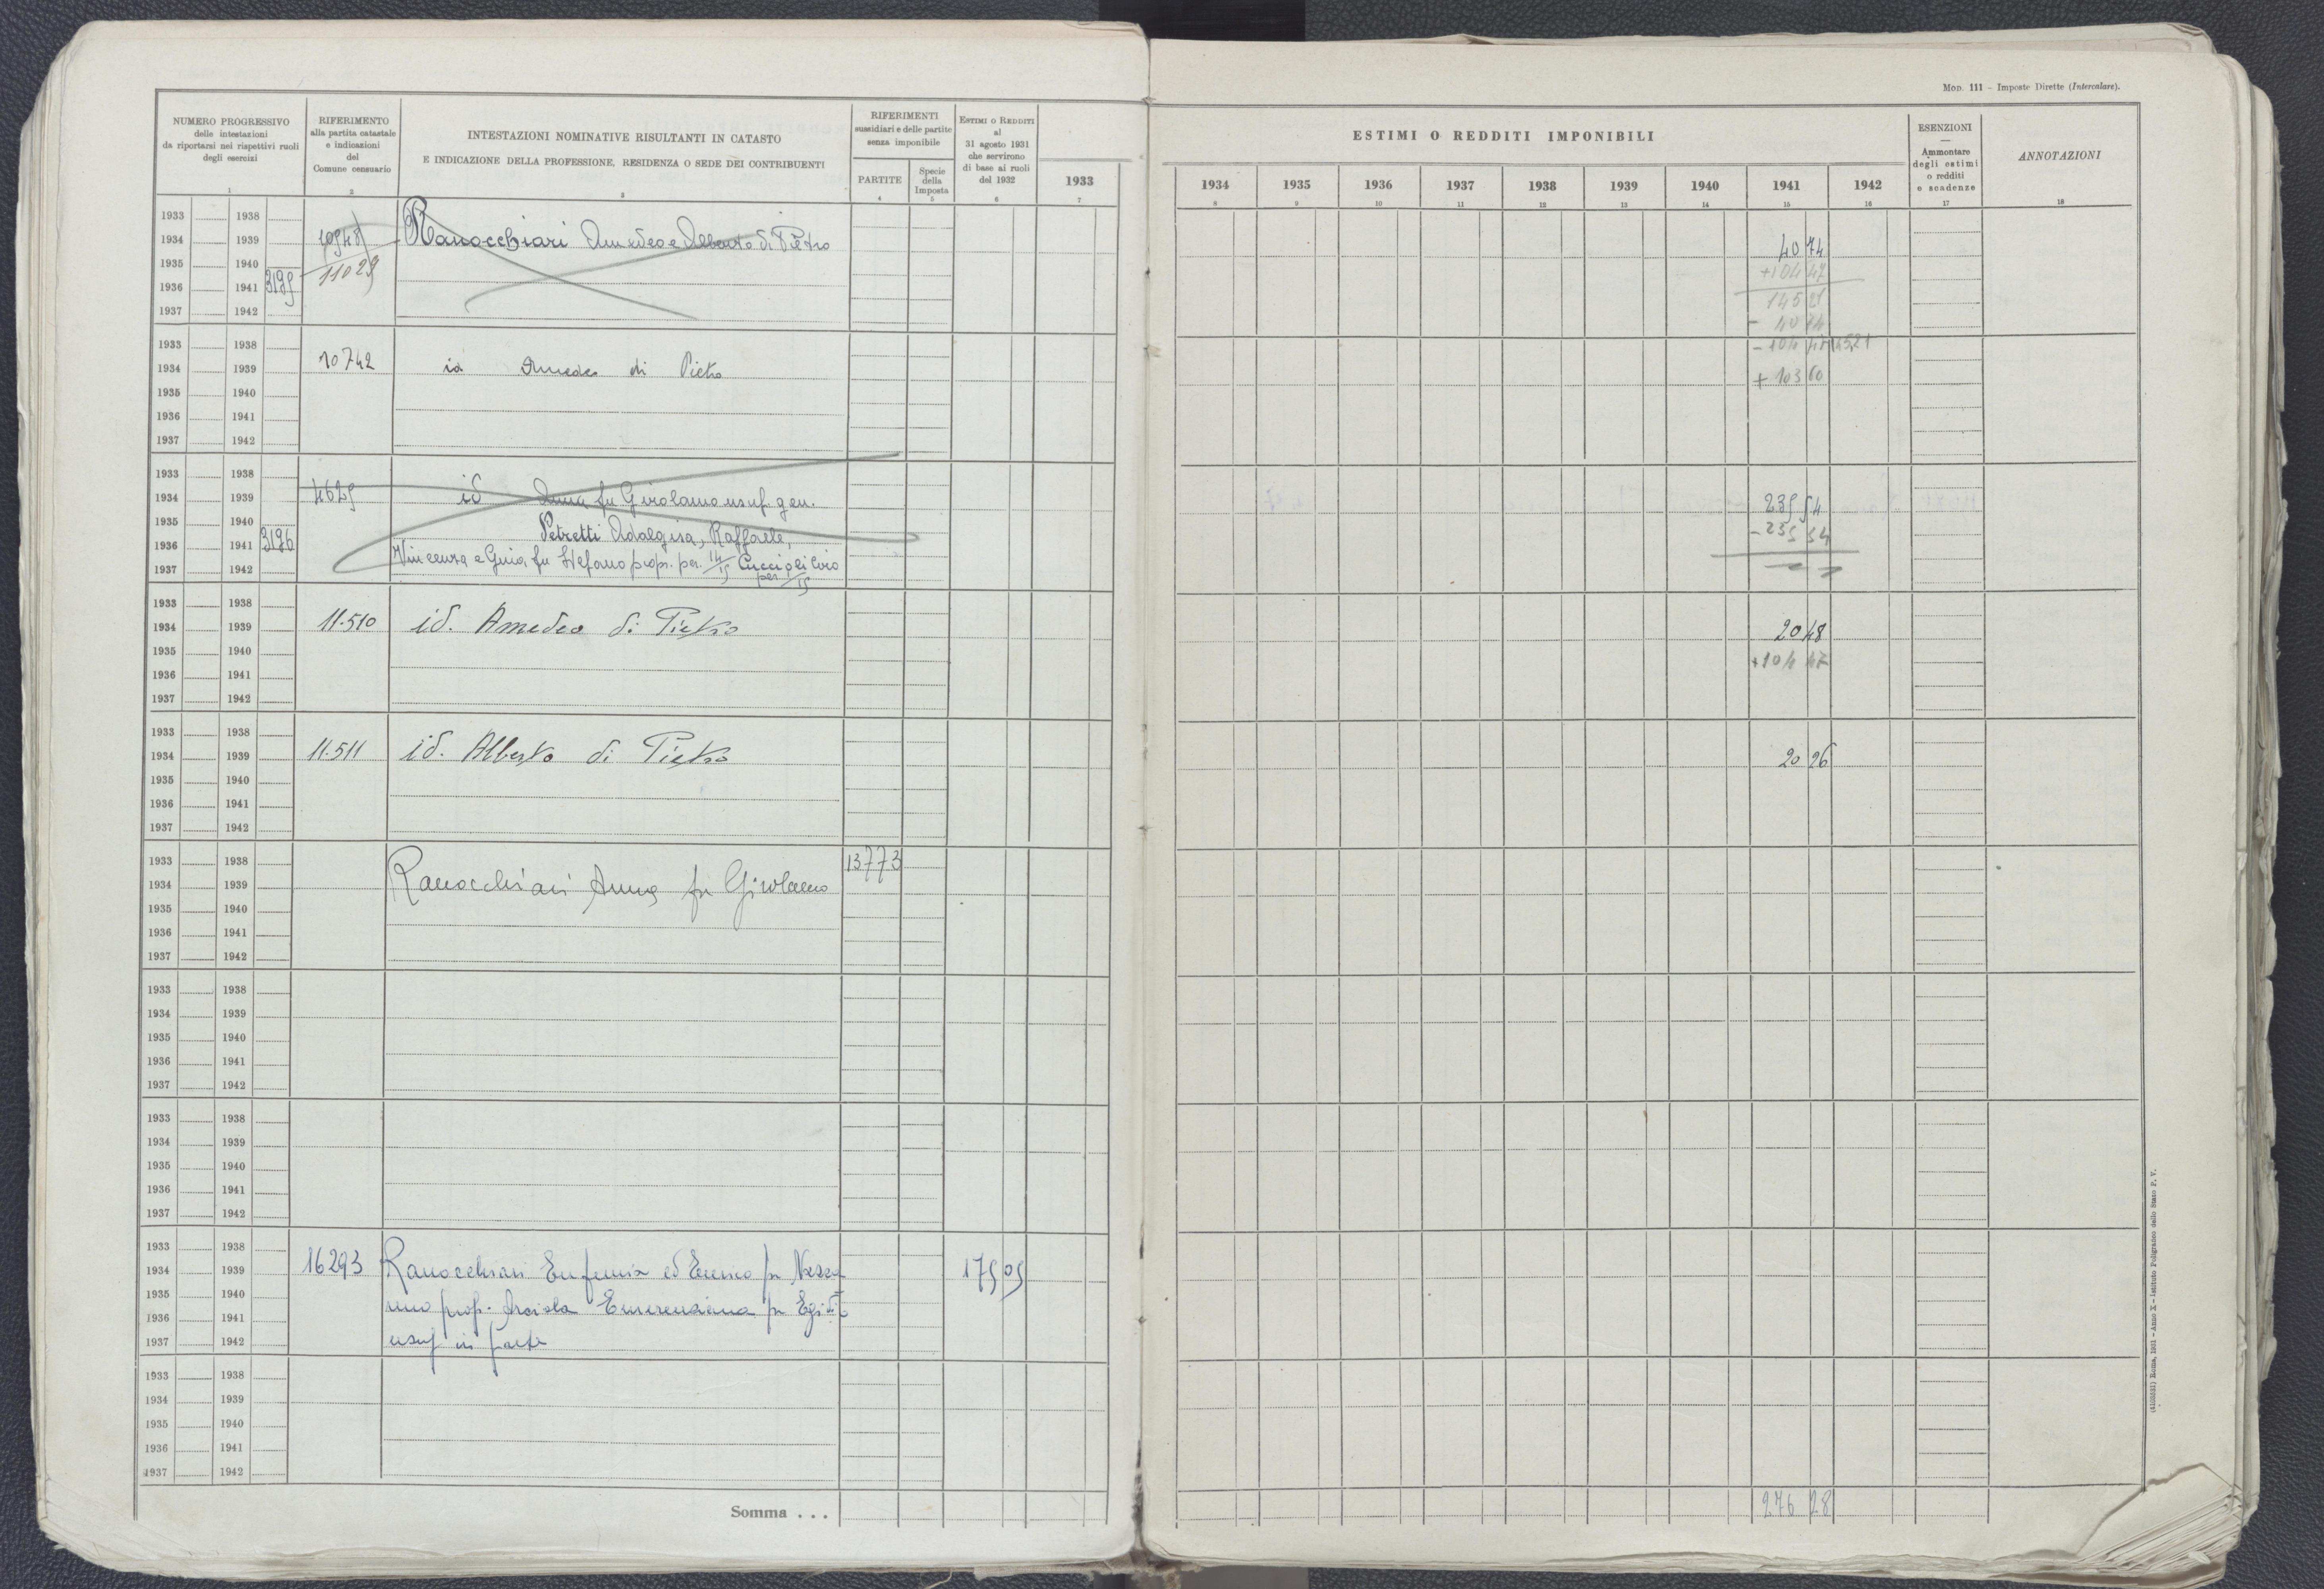 Mod. 111 - Imposte Dirette (Intercalare).
NUMERO PROGRESSIVO
delle intestazioni
da riportarsi nei rispettivi ruoli
degli esercizi
1
RIFERIMENTO
alla partita catastale
e indicazioni
del
Comune censuario
2
INTESTAZIONI NOMINATIVE RISULTANTI IN CATASTO
E INDICAZIONE DELLA PROFESSIONE, RESIDENZA O SEDE DEI CONTRIBUENTI
3
RIFERIMENTI
sussidiari e delle partite
senza imponibile
PARTITE
4
Specie
della
Imposta
5
ESTIMI O REDDITI
al
31 agosto 1931
che servirono
di base ai ruoli
del 1932
6
1933
7
ESTIMI O REDDITI IMPONIBILI
1934 1935 1936 1937 1938 1939 1940 1941 1942
8 9 10 11 12 13 14 15 16
ESENZIONI
—
Ammontare
degli estimi
o redditi
e scadenze
17
ANNOTAZIONI
18
1933 1938
1934 1939 10948 Ranocchiari Amedeo e Alberto di Pietro 40 74
1935 1940 11029 +104 47
1936 1941 3195 145 21
1937 1942 - 40 74
1933 1938 - 104 47 145,21
1934 1939 10742 id Amedeo di Pietro + 103 60
1935 1940
1936 1941
1937 1942
1933 1938
1934 1939 4625 id Anna fu Girolamo usuf. gen. 235 54
1935 1940 Petretti Adalgisa, Raffaele, -235 54
1936 1941 3196 Vincenza e Guia, fu Stefano propr. per 14/15
1937 1942 per /15
1933 1938
1934 1939 11.510 id. Amedeo di Pietro 20 48
1935 1940 +104 47
1936 1941
1937 1942
1933 1938
1934 1939 11.511 id. Alberto di Pietro 20 26
1935 1940
1936 1941
1937 1942
1933 1938 13773
1934 1939 Ranocchiari Anna fu Girolamo
1935 1940
1936 1941
1937 1942
1933 1938
1934 1939
1935 1940
1936 1941
1937 1942
1933 1938
1934 1939
1935 1940
1936 1941
1937 1942
1933 1938
1934 1939 16293 Ranocchiari Eufemia ed Enrico fu Nazza 175 05
1935 1940
1936 1941 reno prop. Emerenziana fu Egidio
1937 1942 usuf in parte
1933 1938
1934 1939
1935 1940
1936 1941
1937 1942
Somma . . . 276 28
(4105631) Roma, 1931 - Anno X - Istituto Poligrafico dello Stato P. V.